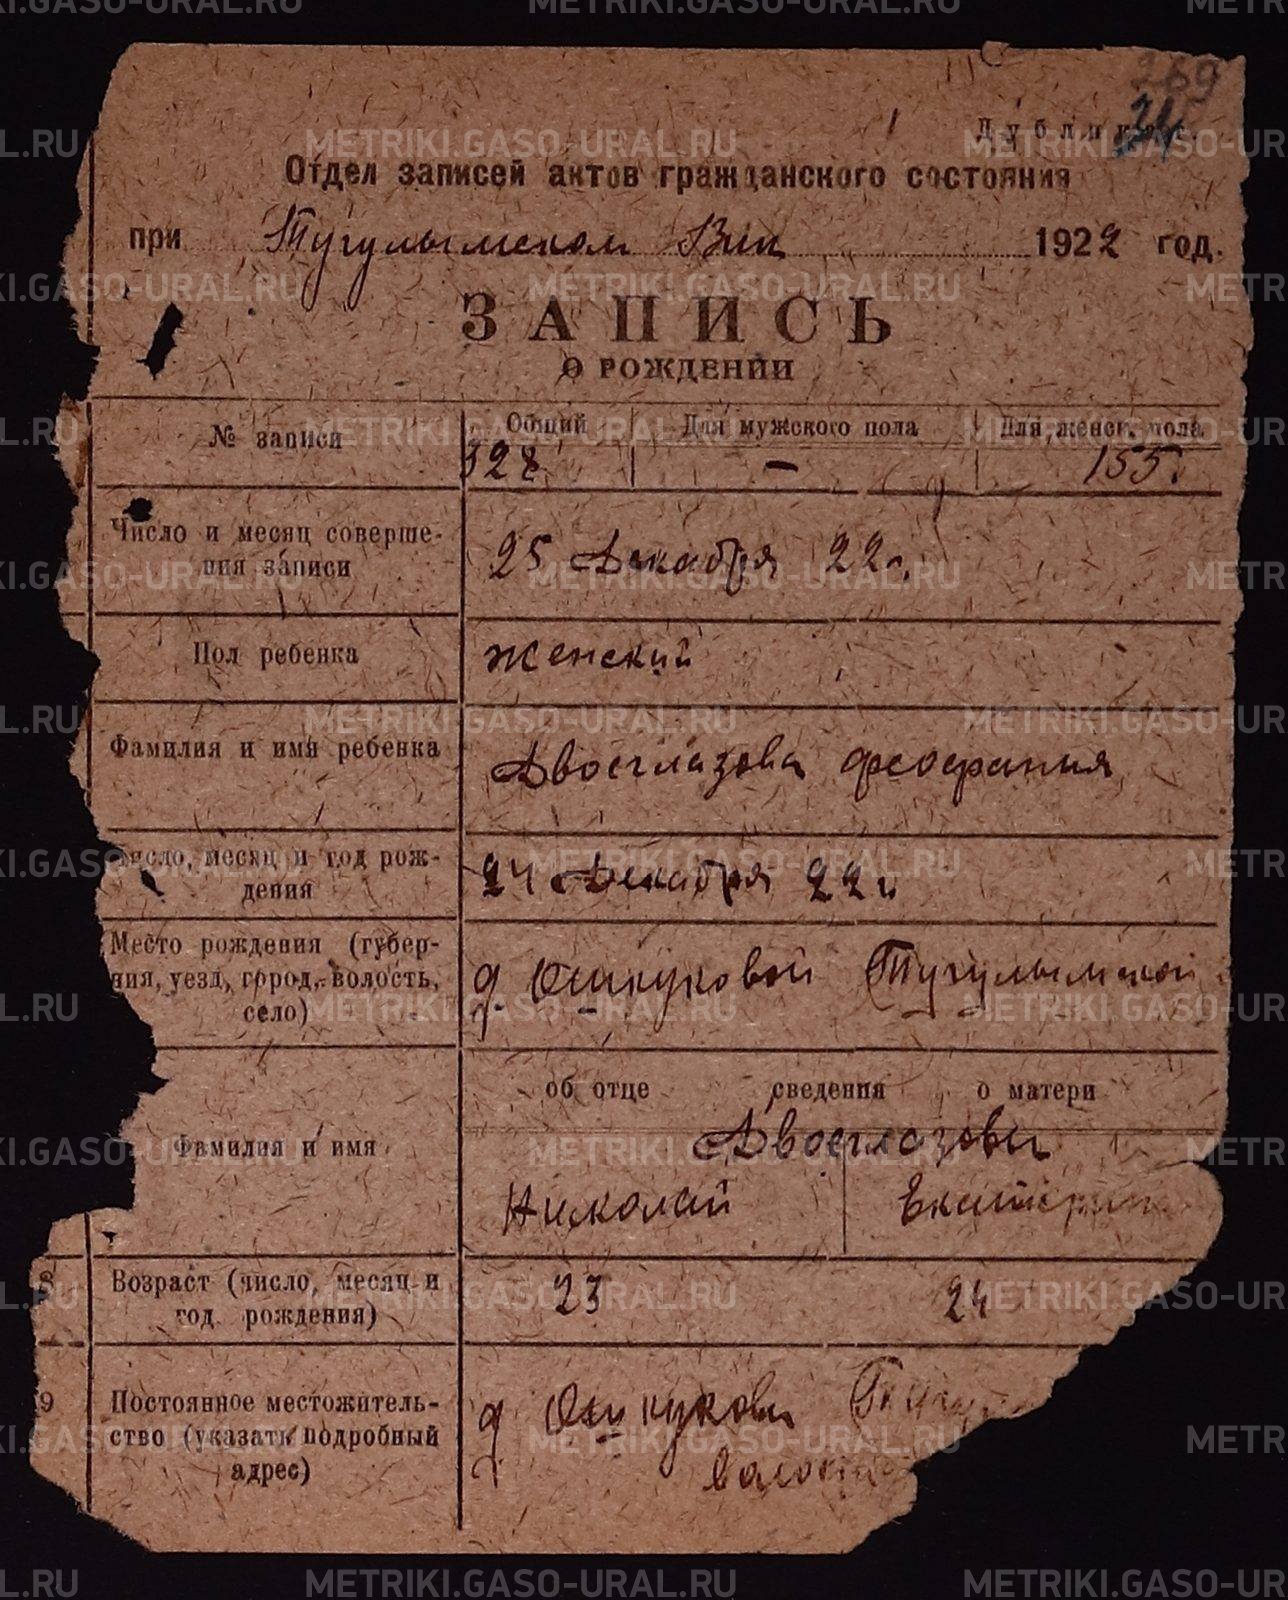 269
24
Дубликат.
Отдел записей актов гражданского состояния
при Тугулымском Вик 1922 год.
ЗАПИСЬ
О РОЖДЕНИИ
№ записи
Общий
Для мужского пола
Для женск. пола
328
—
155.
Число и месяц соверше-
ния записи
25 Декабря 22 г.
Пол ребенка
Женский
Фамилия и имя ребенка
Двоеглазова Феофания
Число, месяц и год рож-
дения
24 Декабря 22 г.
Место рождения (губер-
ния, уезд, город, волость,
село)
д Ошкуковой Тугулымской
об отце сведения о матери
Фамилия и имя
Двоеглазовы
Николай
Екатерин
8
Возраст (число, месяц и
год рождения)
23
24
9
Постоянное местожитель-
ство (указать подробный
адрес)
д Ошкукова Тугу
волость
METRIKI.GASO-URAL.RU